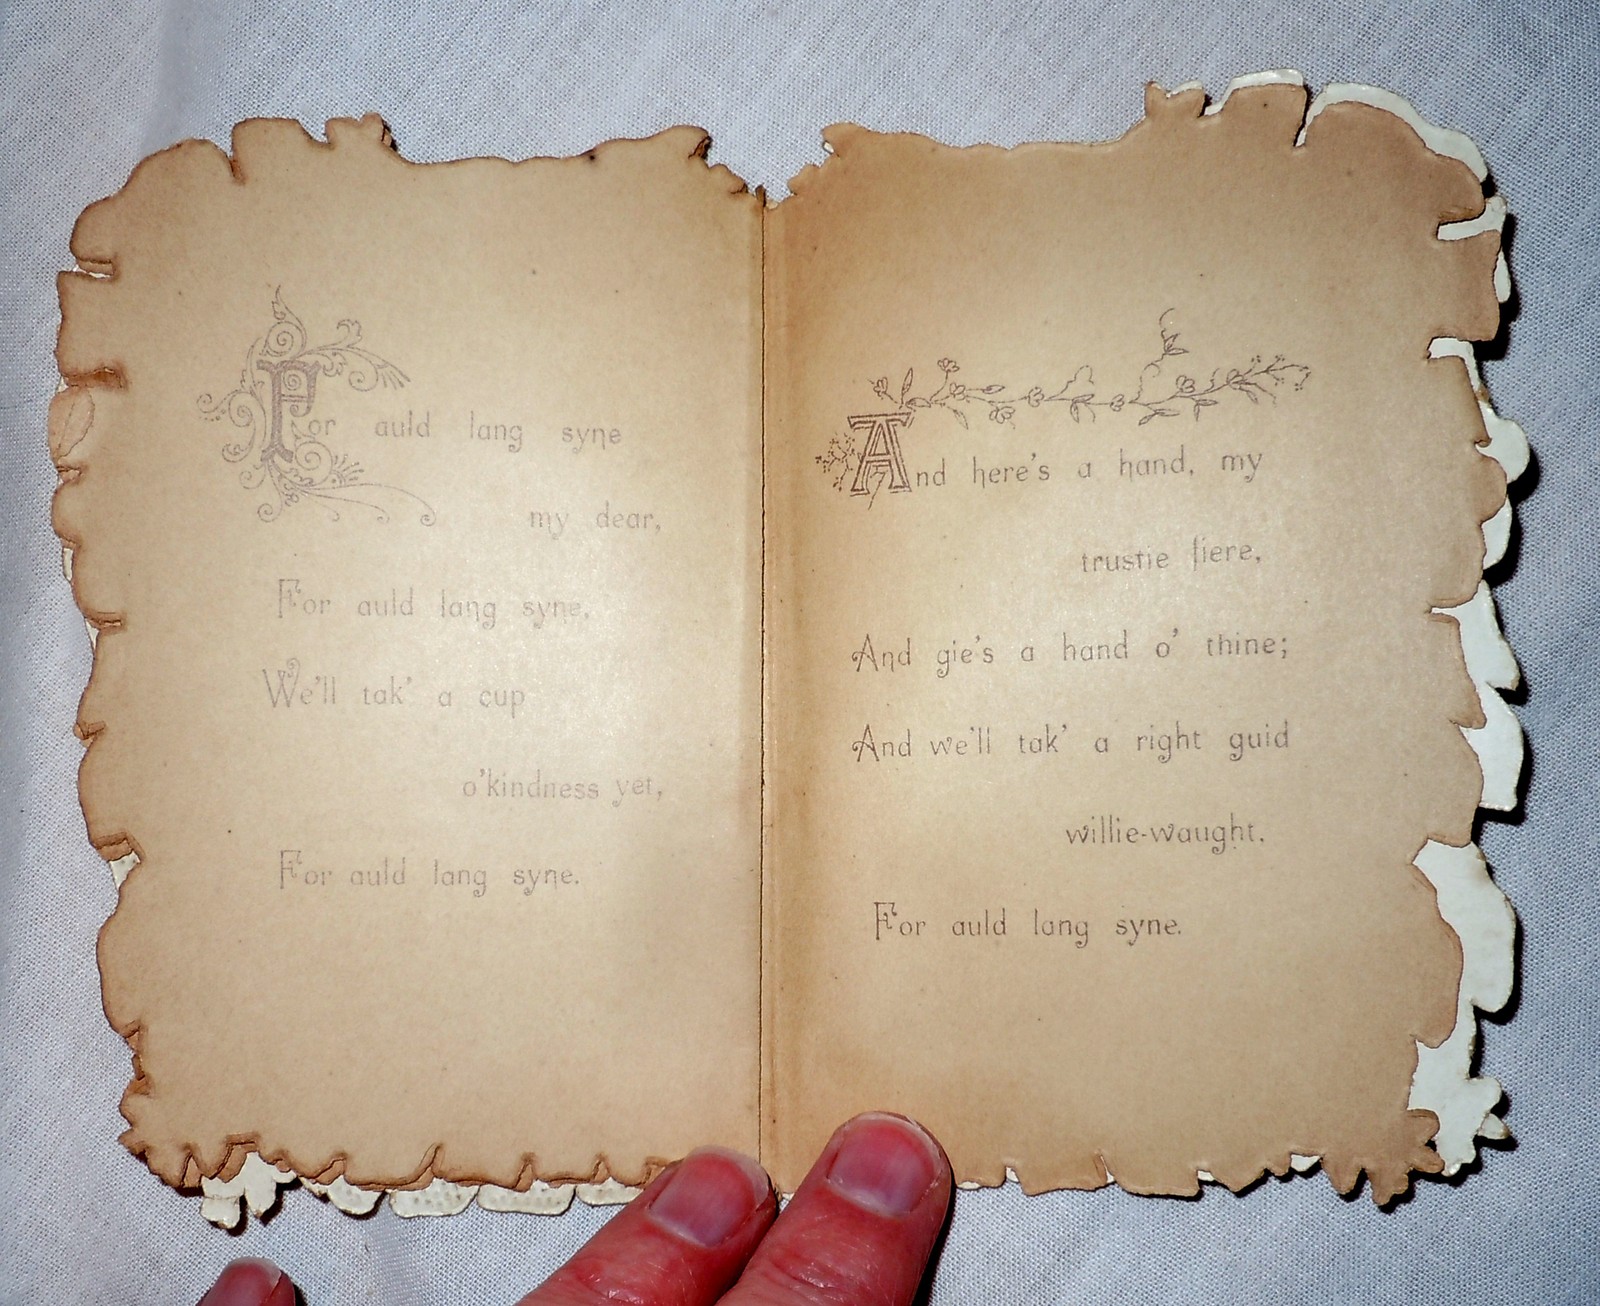 For auld lang syne
my dear,
For auld lang syne,
We'll tak' a cup
o'kindness yet,
For auld lang syne.
And here's a hand, my
trustie fiere,
And gie's a hand o' thine;
And we'll tak' a right guid
willie-waught.
For auld lang syne.